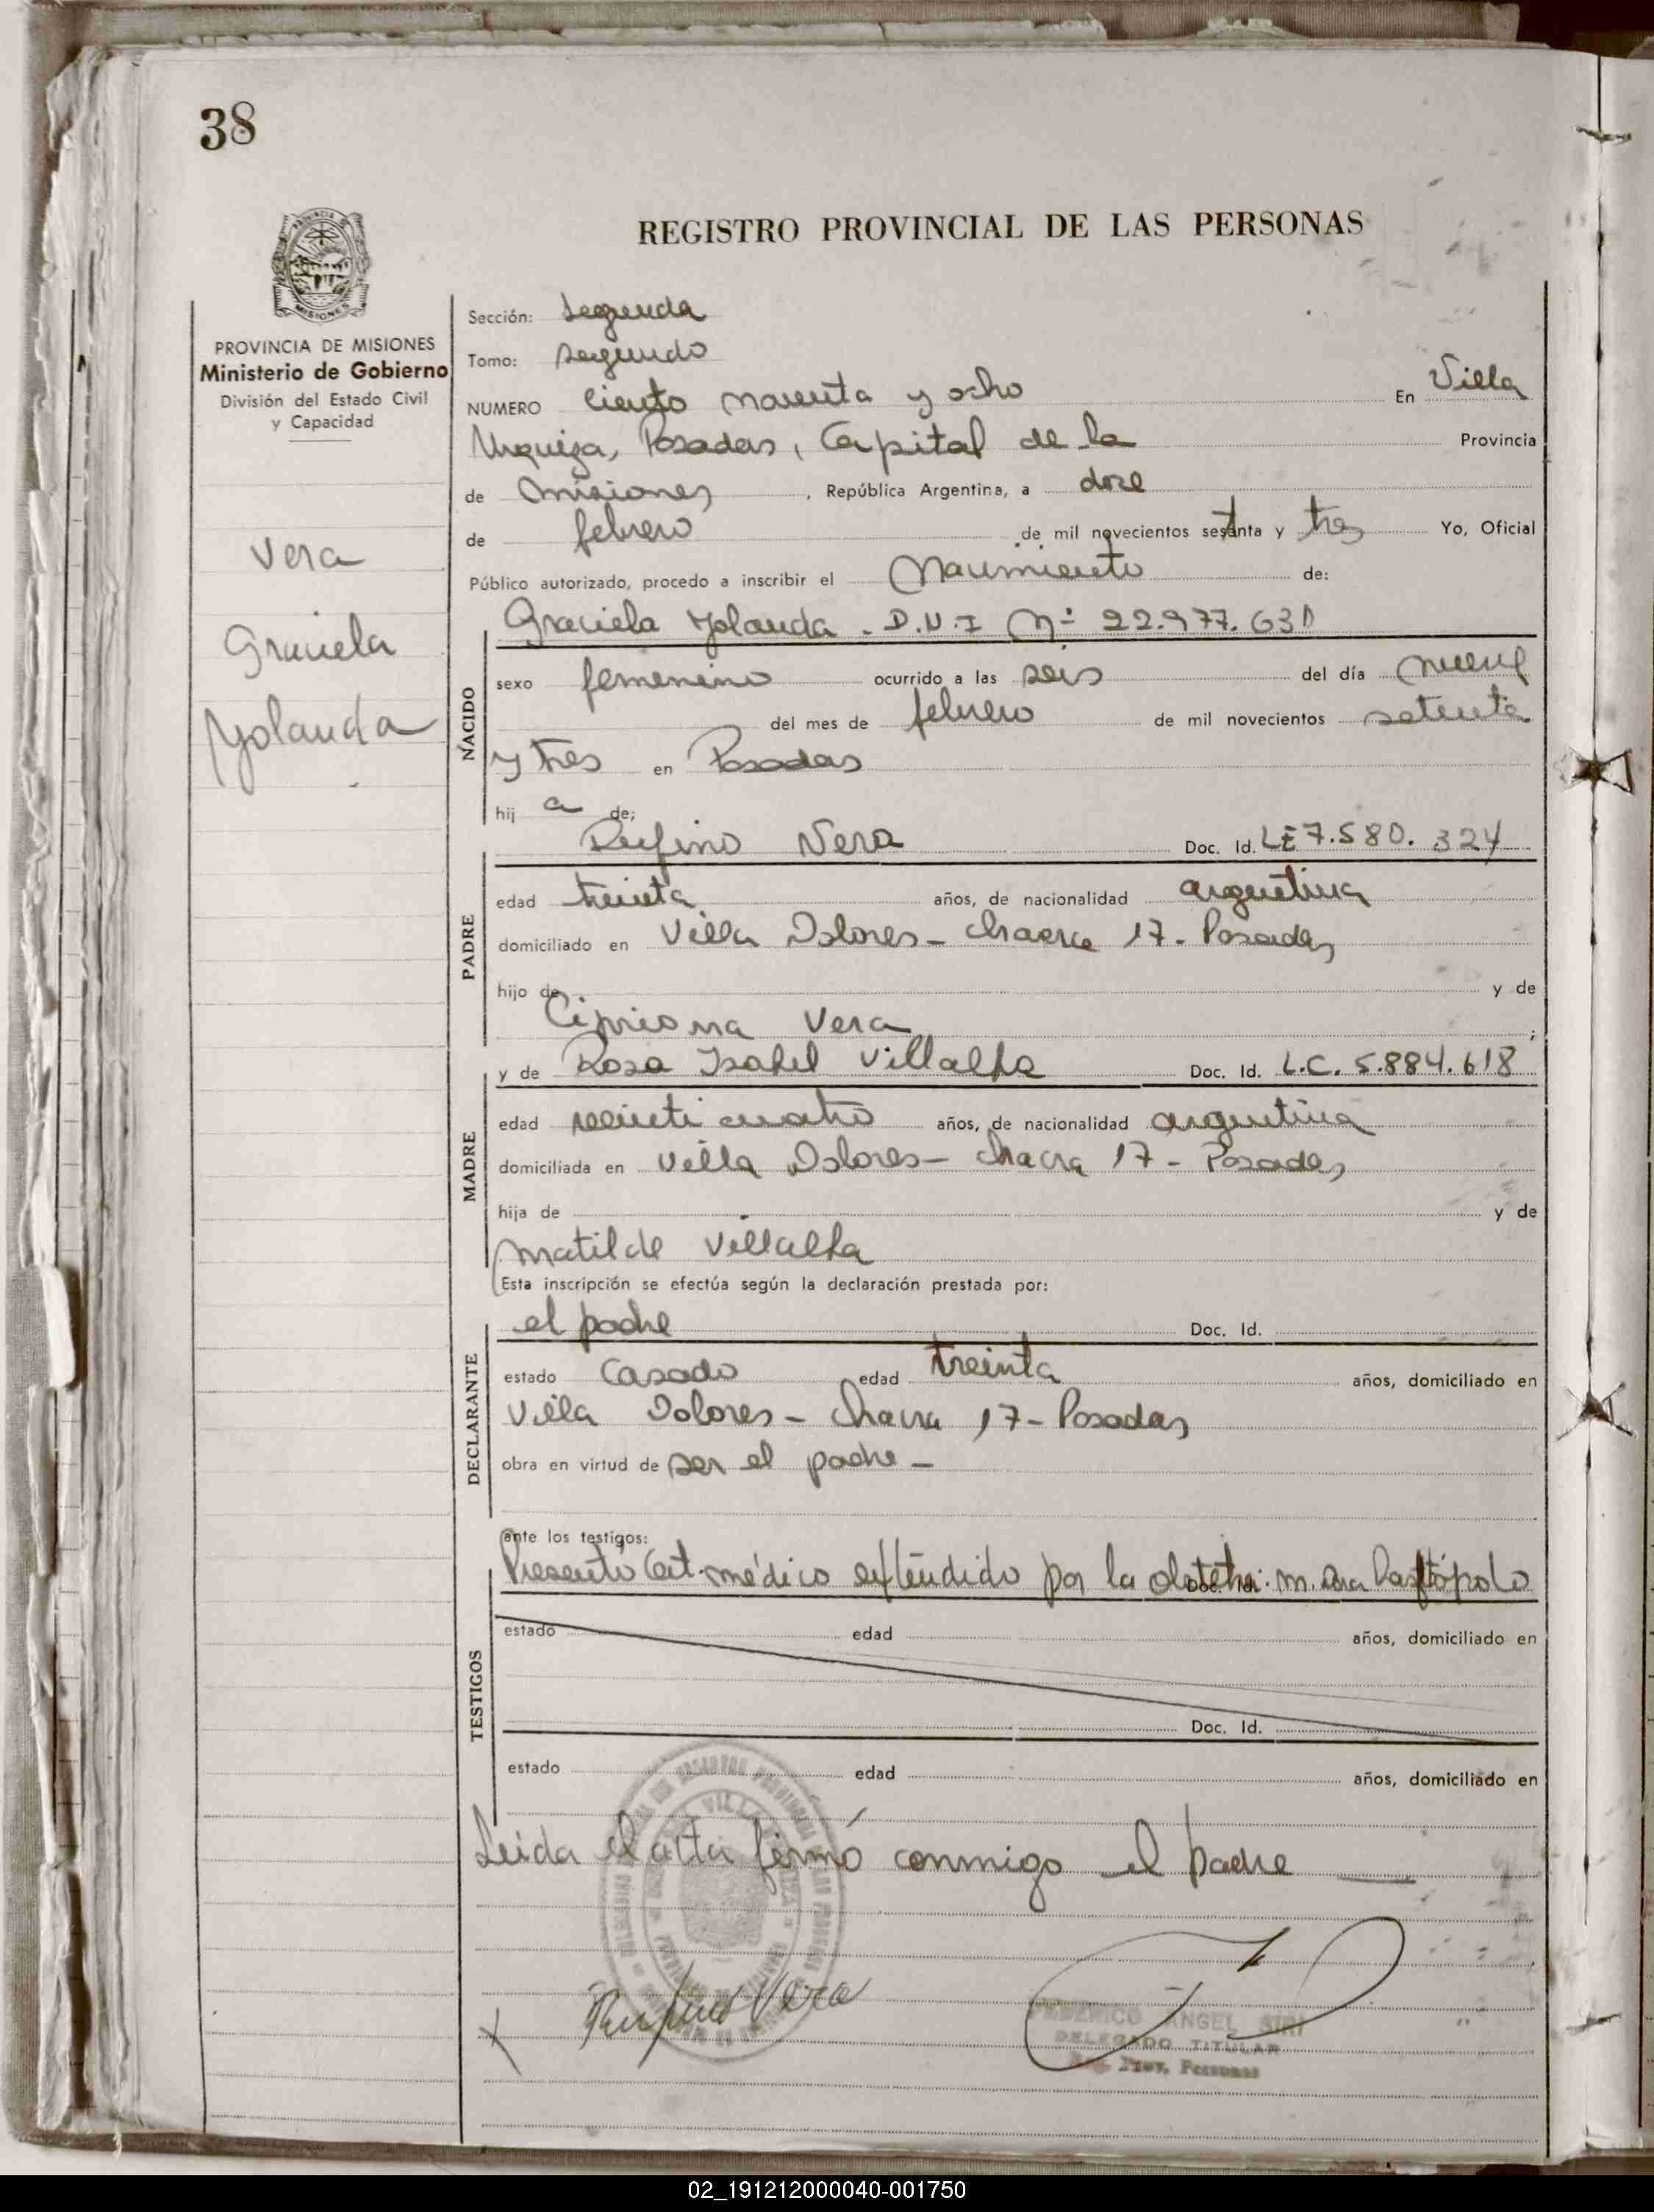 38
REGISTRO PROVINCIAL DE LAS PERSONAS
MISIONES
PROVINCIA DE MISIONES
Ministerio de Gobierno
División del Estado Civil
y Capacidad
Vera
Graciela
Yolanda
Sección: Segunda
Tomo: Segundo
NUMERO Ciento noventa y ocho En Villa
Urquiza, Posadas, Capital de la Provincia
de Misiones, República Argentina, a doce
de febrero de mil novecientos setenta y tres Yo, Oficial
Público autorizado, procedo a inscribir el Nacimiento de:
Graciela Yolanda - D.N.I Nº 22.977.631
NACIDO
sexo femenino ocurrido a las seis del día nueve
del mes de febrero de mil novecientos setenta
y tres en Posadas
hij a de;
Rufino Vera Doc. Id. LE 7.580.324
PADRE
edad treinta años, de nacionalidad argentina
domiciliado en Villa Dolores - Chacra 17 - Posadas
hijo de y de
Cipriana Vera ;
y de Rosa Isabel Villalba Doc. Id. L.C. 5.884.618
MADRE
edad veinticuatro años, de nacionalidad argentina
domiciliada en Villa Dolores - Chacra 17 - Posadas
hija de y de
Matilde Villalba
Esta inscripción se efectúa según la declaración prestada por:
el padre Doc. Id.
DECLARANTE
estado Casado edad treinta años, domiciliado en
Villa Dolores - Chacra 17 - Posadas
obra en virtud de ser el padre -
ante los testigos:
Presentó Cert. médico extendido por la obstetra: M.
TESTIGOS
estado edad años, domiciliado en
Doc. Id.
estado edad años, domiciliado en
Leida el acta firmó conmigo el padre
Rufino Vera
FEDERICO ANGEL SIRI
DELEGADO TITULAR
Reg. Prov. Personas
02_191212000040-001750